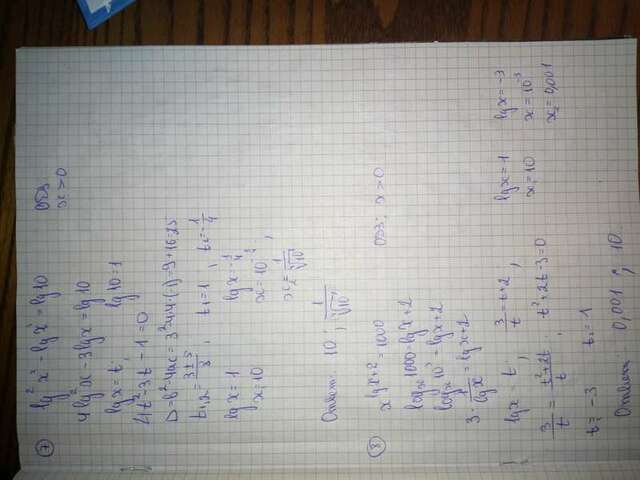 ⑦ lg² x² - lg x³ = lg 10    ОДЗ
x > 0
4 lg² x - 3 lg x = lg 10
lg x = t;    lg 10 = 1
4t² - 3t - 1 = 0
D = b² - 4ac = 3² - 4·4·(-1) = 9 + 16 = 25
t₁,₂ = (3 ± 5)/8, t₁ = 1, t₂ = -1/4
lg x = 1    lg x = -1/4
x₁ = 10    x = 10^(-1/4);
x₂ = 1/⁴√10
Ответ: 10; 1/⁴√10
⑧ x^(lg x + 2) = 1000    ОДЗ: x > 0
logₓ 1000 = lg x + 2
logₓ 10³ = lg x + 2
3 · 1/lg x = lg x + 2
lg x = t;    3/t = t + 2;    lg x = 1    lg x = -3
x₁ = 10    x = 10⁻³
3/t = (t² + 2t)/t;    t² + 2t - 3 = 0    x₂ = 0,001
t₁ = -3    t₂ = 1
Ответ: 0,001; 10